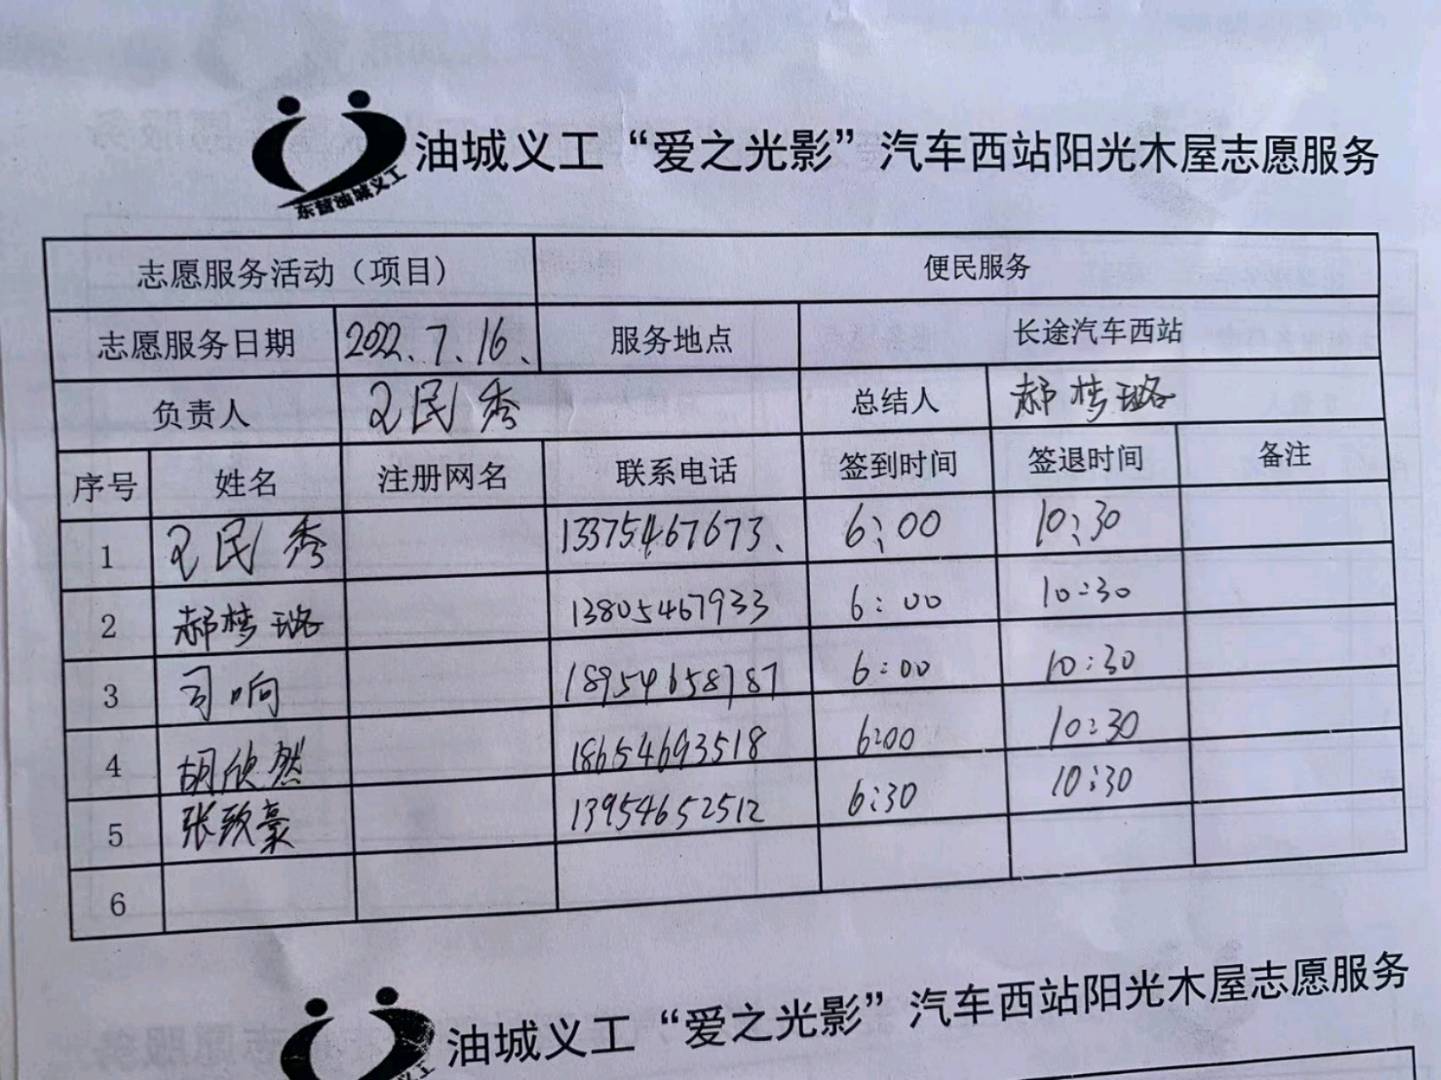 油城义工“爱之光影”汽车西站阳光木屋志愿服务
东营油城义工
志愿服务活动（项目） 便民服务
志愿服务日期 2022.7.16. 服务地点 长途汽车西站
负责人 王民秀 总结人 郝梦璐
序号 姓名 注册网名 联系电话 签到时间 签退时间 备注
1 王民秀 13375467673、 6:00 10:30
2 郝梦璐 13805467933 6:00 10:30
3 司响 18954658787 6:00 10:30
4 胡欣然 18654693518 6:00 10:30
5 张致豪 13954652512 6:30 10:30
6
油城义工“爱之光影”汽车西站阳光木屋志愿服务